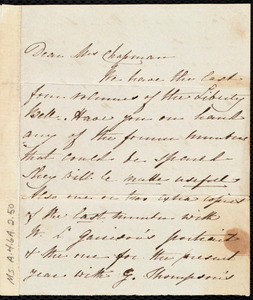 Dear Mrs Chapman
We have the last
four volumes of the Liberty
Bell. Have you on hand
any of the former numbers
that could be spared
They will be made useful
Also one or two extra copies
of the last number with
W L Garrison's portrait
& the one for the present
year with G. Thompson's
Ms A.4.6A.2.50